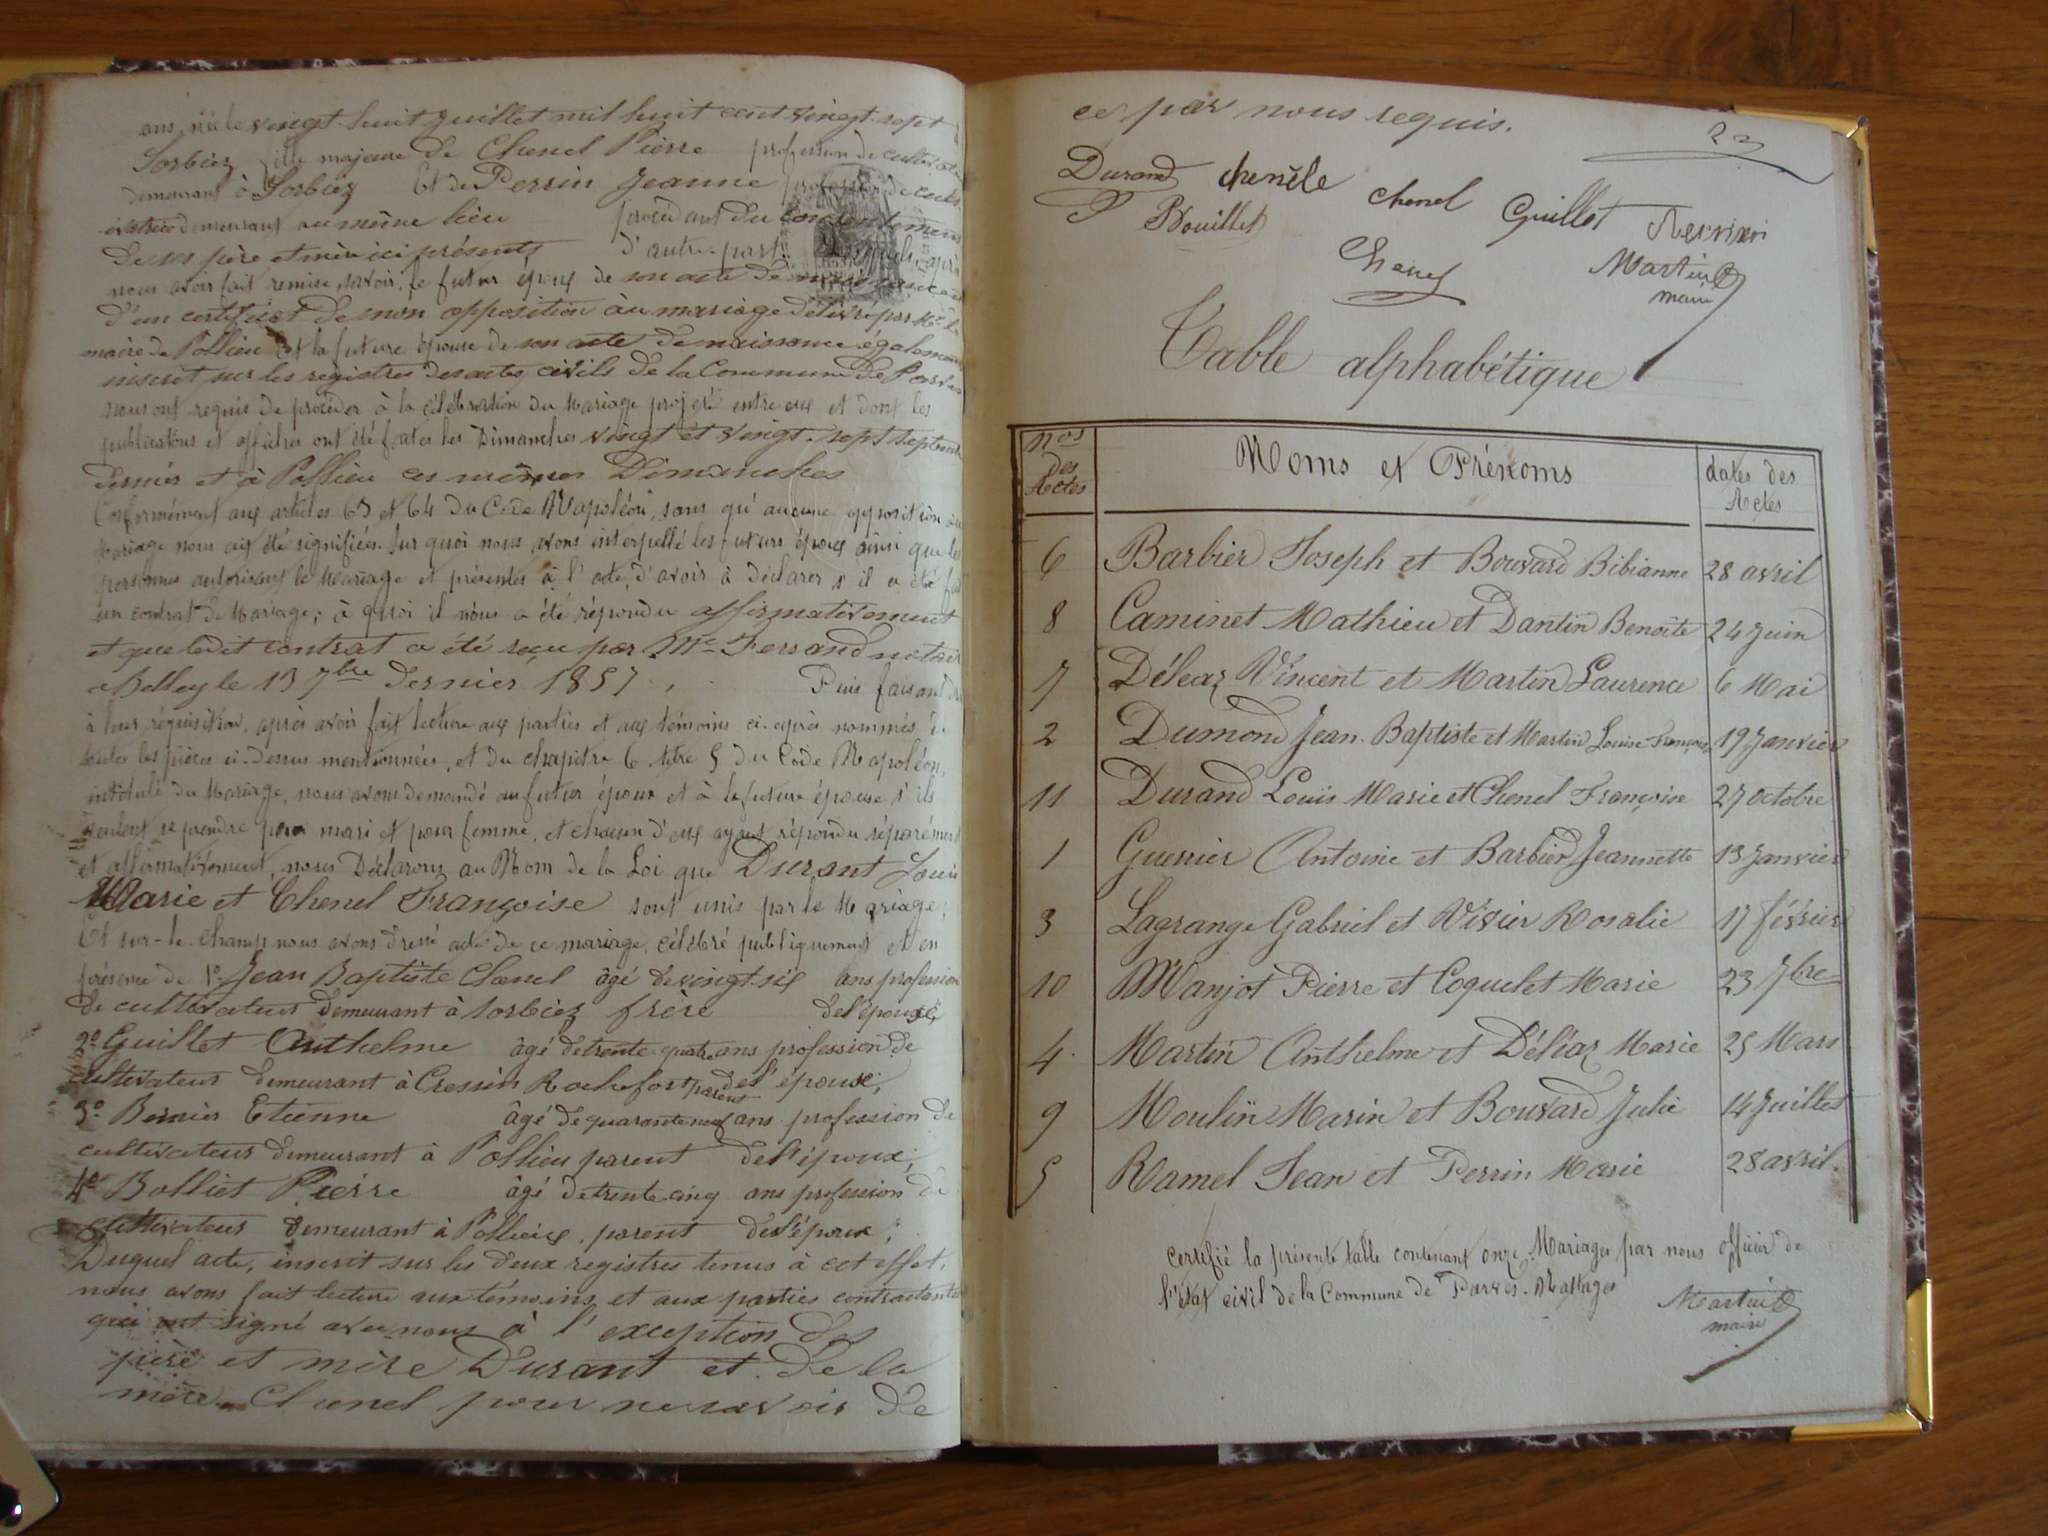 ans, née le vingt-huit Juillet mil huit cent vingt-sept à
Sorbiez fille majeure de Chenel Pierre profession de cultivateur
demeurant à Sorbiez Et de Perrin Jeanne profession de culti
vatrice demeurant au même lieu procédant du consentement
de ses père et mère ici présents d'autre part; Lesquels, après
nous avoir fait remise, savoir, le futur époux de son acte de naissance et
d'un certificat de non opposition au mariage délivré par Mr le
maire de Pollieu et la future épouse de son acte de naissance également
inscrit sur les registres des actes civils de la Commune de Parves
nous ont requis de procéder à la célébration du Mariage projeté entre eux et dont les
publications et affiches ont été faites les Dimanches vingt et vingt-sept septembre
dernier et à Pollieu ces mêmes Dimanches
Conformément aux articles 63 et 64 du Code Napoléon, sans qu'aucune opposition au
Mariage nous ait été signifiée. Sur quoi nous avons interpellé les futurs époux ainsi que les
personnes autorisant le Mariage et présentes à l'acte, d'avoir à déclarer s'il a été fait
un contrat de Mariage; à quoi il nous a été répondu affirmativement
et que ledit contrat a été reçu par Me Ferrand notaire
à Belley le 13 7bre dernier 1857. Puis faisant droit
à leur réquisition, après avoir fait lecture aux parties et aux témoins ci-après nommés, de
toutes les pièces ci-dessus mentionnées, et du chapitre 6 titre 5 du Code Napoléon,
intitulé du Mariage, nous avons demandé au futur époux et à la future épouse s'ils
veulent se prendre pour mari et pour femme, et chacun d'eux ayant répondu séparément
et affirmativement, nous Déclarons au Nom de la Loi que Durant Louis
Marie et Chenel Françoise sont unis par le Mariage;
Et sur-le-champ nous avons dressé acte de ce mariage, célébré publiquement et en
présence de 1º Jean Baptiste Chenel âgé de vingt-six ans profession
de cultivateur demeurant à Sorbiez frère de l'épouse;
2º Guillet Anthelme âgé de trente-quatre ans profession de
cultivateur demeurant à Cressin Rochefort parent de l'époux;
3º Bernier Etienne âgé de quarante neuf ans profession de
cultivateur demeurant à Pollieu parent de l'époux;
4º Bolliet Pierre âgé de trente cinq ans profession de
cultivateur demeurant à Pollieu, parent de l'époux;
Duquel acte, inscrit sur les deux registres tenus à cet effet,
nous avons fait lecture aux témoins et aux parties contractantes
qui ont signé avec nous à l'exception des
père et mère Durant et de la
mère Chenel pour ne savoir de
ce par nous requis.
23
Durand chenèle chenel Guillet
P Bouillet
Chenel Martin
maire
Table alphabétique
nos des Actes Noms et Prénoms dates des Actes
6 Barbier Joseph et Bouvard Bibianne 28 avril
8 Caminet Mathieu et Dantin Benoîte 24 Juin
7 Déléaz Vincent et Martin Laurence 6 Mai
2 Dumond Jean-Baptiste et Martin Louise Françoise 19 Janvier
11 Durand Louis Marie et Chenel Françoise 27 octobre
1 Guerrier Antoine et Barbier Jeannette 13 Janvier
3 Lagrange Gabriel et Vivier Rosalie 17 février
10 Manjot Pierre et Coquelet Marie 23 7bre
4. Martin Anthelme et Déléaz Marie 25 Mars
9 Moulin Marin et Bouvard Julie 14 Juillet
5 Ramel Jean et Perrin Marie 28 avril.
Certifié la présente table contenant onze Mariages par nous officier de
l'état civil de la Commune de Parves-Nattages
Martin
maire